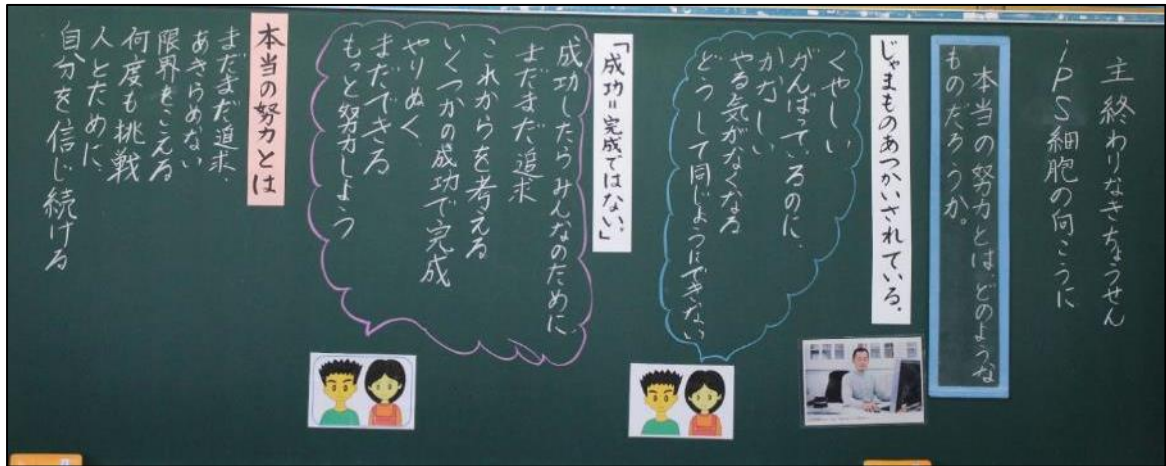 主 終わりなきちょうせん
iPS細胞の向こうに
本当の努力とは、どのような
ものだろうか。
じゃまものあつかいされている。
くやしい
がんばっているのに、
かなしい
やる気がなくなる
どうして同じようにできない
「成功=完成ではない。」
成功したらみんなのために
まだまだ追求
これからを考える
いくつかの成功で完成
やりぬく
まだできる
もっと努力しよう
本当の努力とは
まだまだ追求、
あきらめない
限界をこえる
何度も挑戦
人とために、
自分を信じ続ける